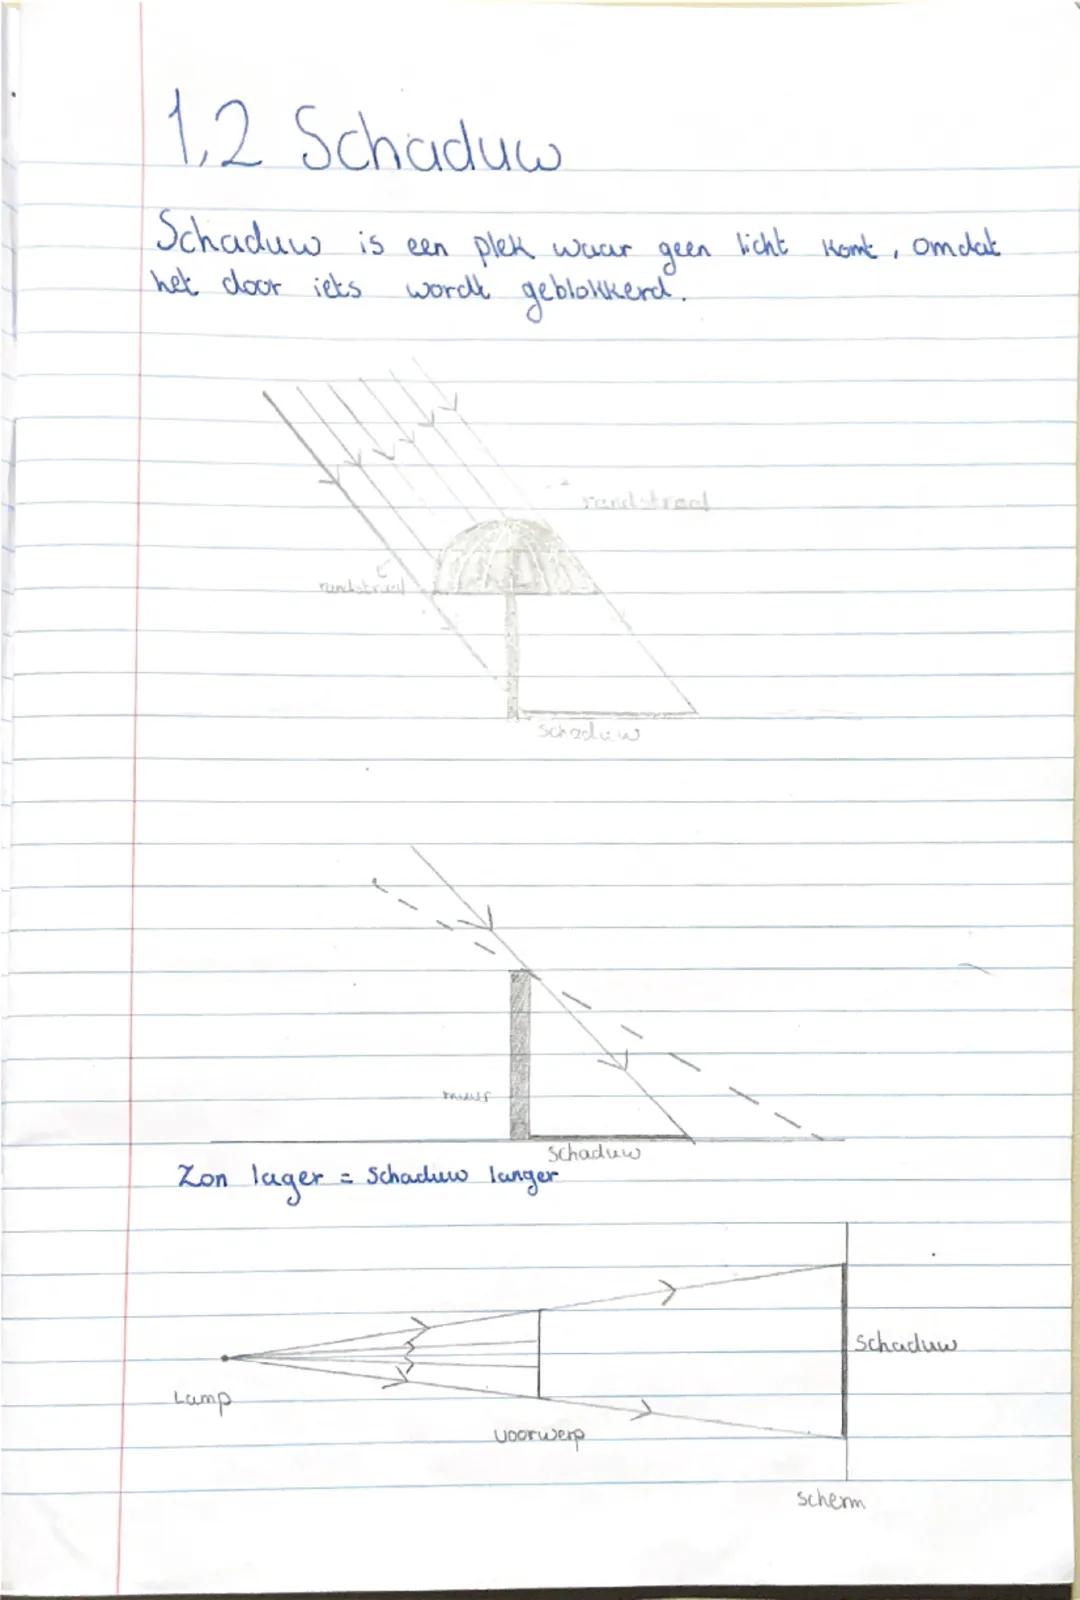 1,2 Schaduw
Schaduw is een plek waar geen licht komt, omdat
het door iets wordt geblokkerd.
randstraal
randstraal
schaduw
muur
schaduw
Zon lager = schaduw langer
schaduw
Lamp
voorwerp
scherm